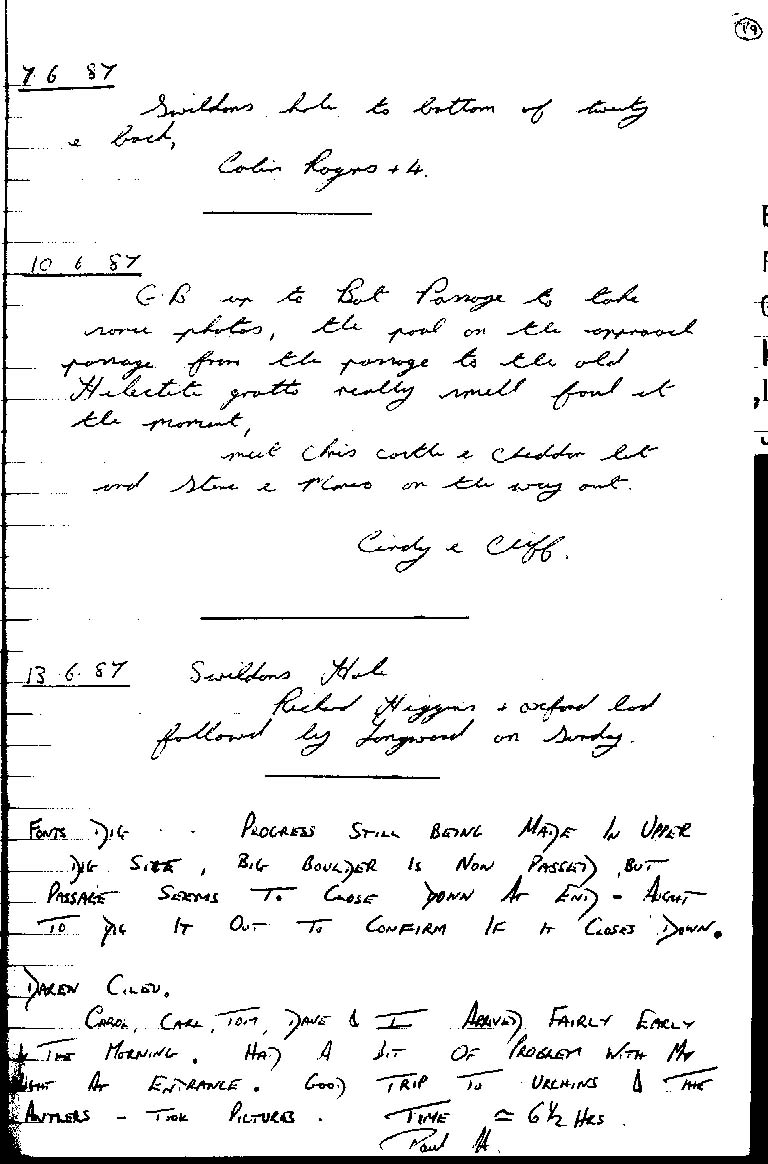 19
7.6 87
Swildons hole to bottom of twenty
& back,
Colin Rogers + 4.
10 6 87
G.B up to Bat Passage to take
some photos, the pool on the approach
passage from the passage to the old
Helectite grotto really smell foul at
the moment,
meet Chris Castle & Cheddar lot
and Steve & on the way out.
Cindy & Cliff.
13.6.87 Swildons Hole
Richard Higgins + oxford lad
followed by Longwood on Sunday.
FONTS DIG . . PROGRESS STILL BEING MADE IN UPPER
DIG SITE, BIG BOULDER IS NOW PASSED, BUT
PASSAGE SEEMS TO CLOSE DOWN AT END - AUGHT
TO DIG IT OUT TO CONFIRM IF IT CLOSES DOWN.
DAREN CILAU.
CAROL, CARL, TOM, DAVE & I ARRIVED FAIRLY EARLY
THE MORNING. HAD A BIT OF PROBLEM WITH MY
LIGHT AT ENTRANCE. GOOD TRIP TO URCHINS & THE
ANTLERS - TOOK PICTURES. TIME ≃ 6½ HRS.
Paul H.